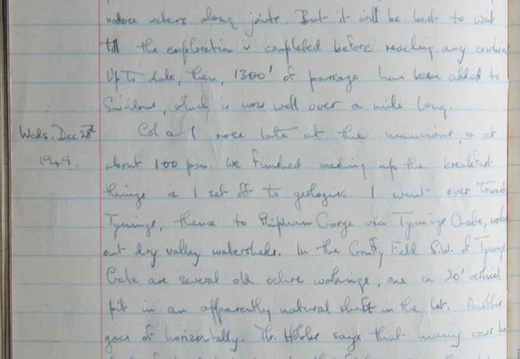 vadose waters along joints. But it will be best to wait
till the exploration is completed before reaching any
Up to date, then, 1300' of passage have been added to
Swildons, which is now well over a mile long.
Weds. Dec 28th Col & I rose late at the mansions, & at
1949. about 1.00 pm. We finished washing up the breakfast
things & I set off to geologise. I went over
Tynings, thence to Gorge via Tynings Gate,
out dry valley watersheds. In the Field S.W. of Tynings
Gate are several old ochre workings, one a 20' vertical
pit in an apparently natural shaft in the lst. Another
goes off horizontally. Mr. says that many